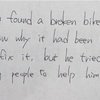 found a broken bike
why it had been
fix it. but he tried
people to help him